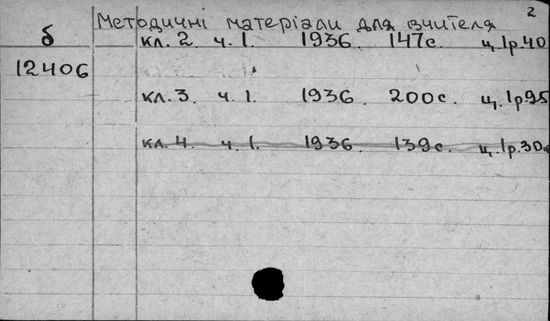 2
Методичні матеріали для вчителя
б кл. 2. ч. 1. 1936. 147с. ц. 1р.40
12406
кл. 3. ч. 1. 1936. 200с. ц. 1р.95
кл. 4. ч. 1. 1936. 139с. ц. 1р.30